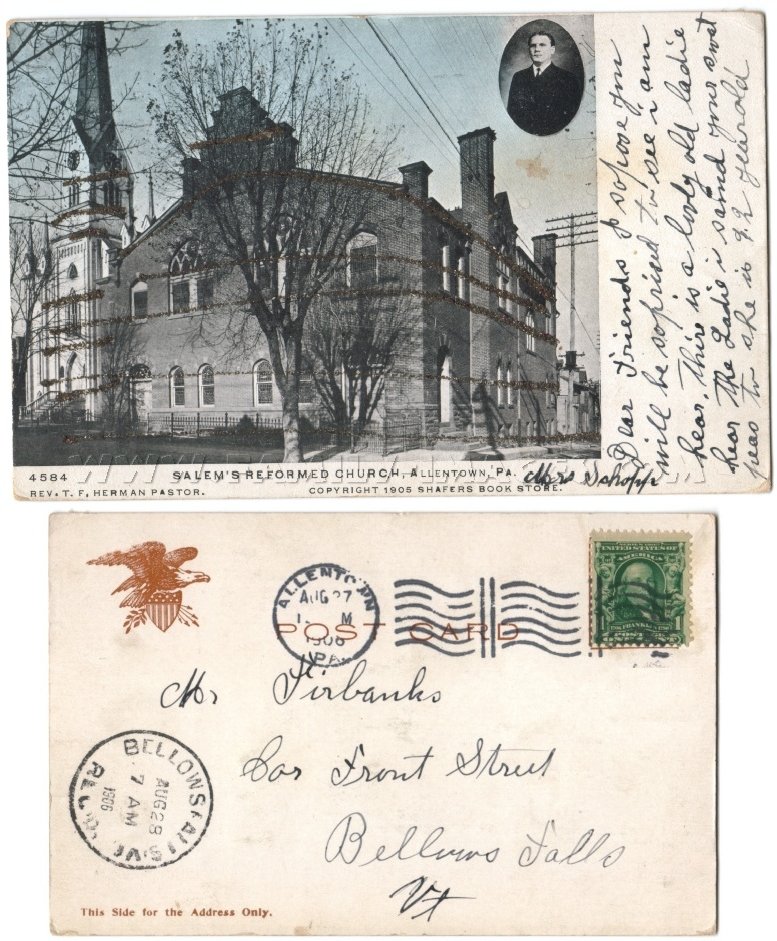 Dear Friends I sopose you
will be soprised to see i am
hear, There is a lovly old ladie
hear The Ladie is saind
peas to she is 92 yearold
Mrs Schopp
4584 SALEM'S REFORMED CHURCH, ALLENTOWN, PA.
REV. T. F. HERMAN PASTOR. COPYRIGHT 1905 SHAFERS BOOK STORE.
ALLENTOWN
AUG 27
M
1906
PA.
POST CARD
UNITED STATES OF
AMERICA
FRANKLIN
1 1
POSTAGE ONE CENT
Mr Firbanks
Cor Front Street
Bellows Falls
Vt
BELLOWS FALLS, VT.
AUG 28
7 AM
1906
REC'D.
This Side for the Address Only.